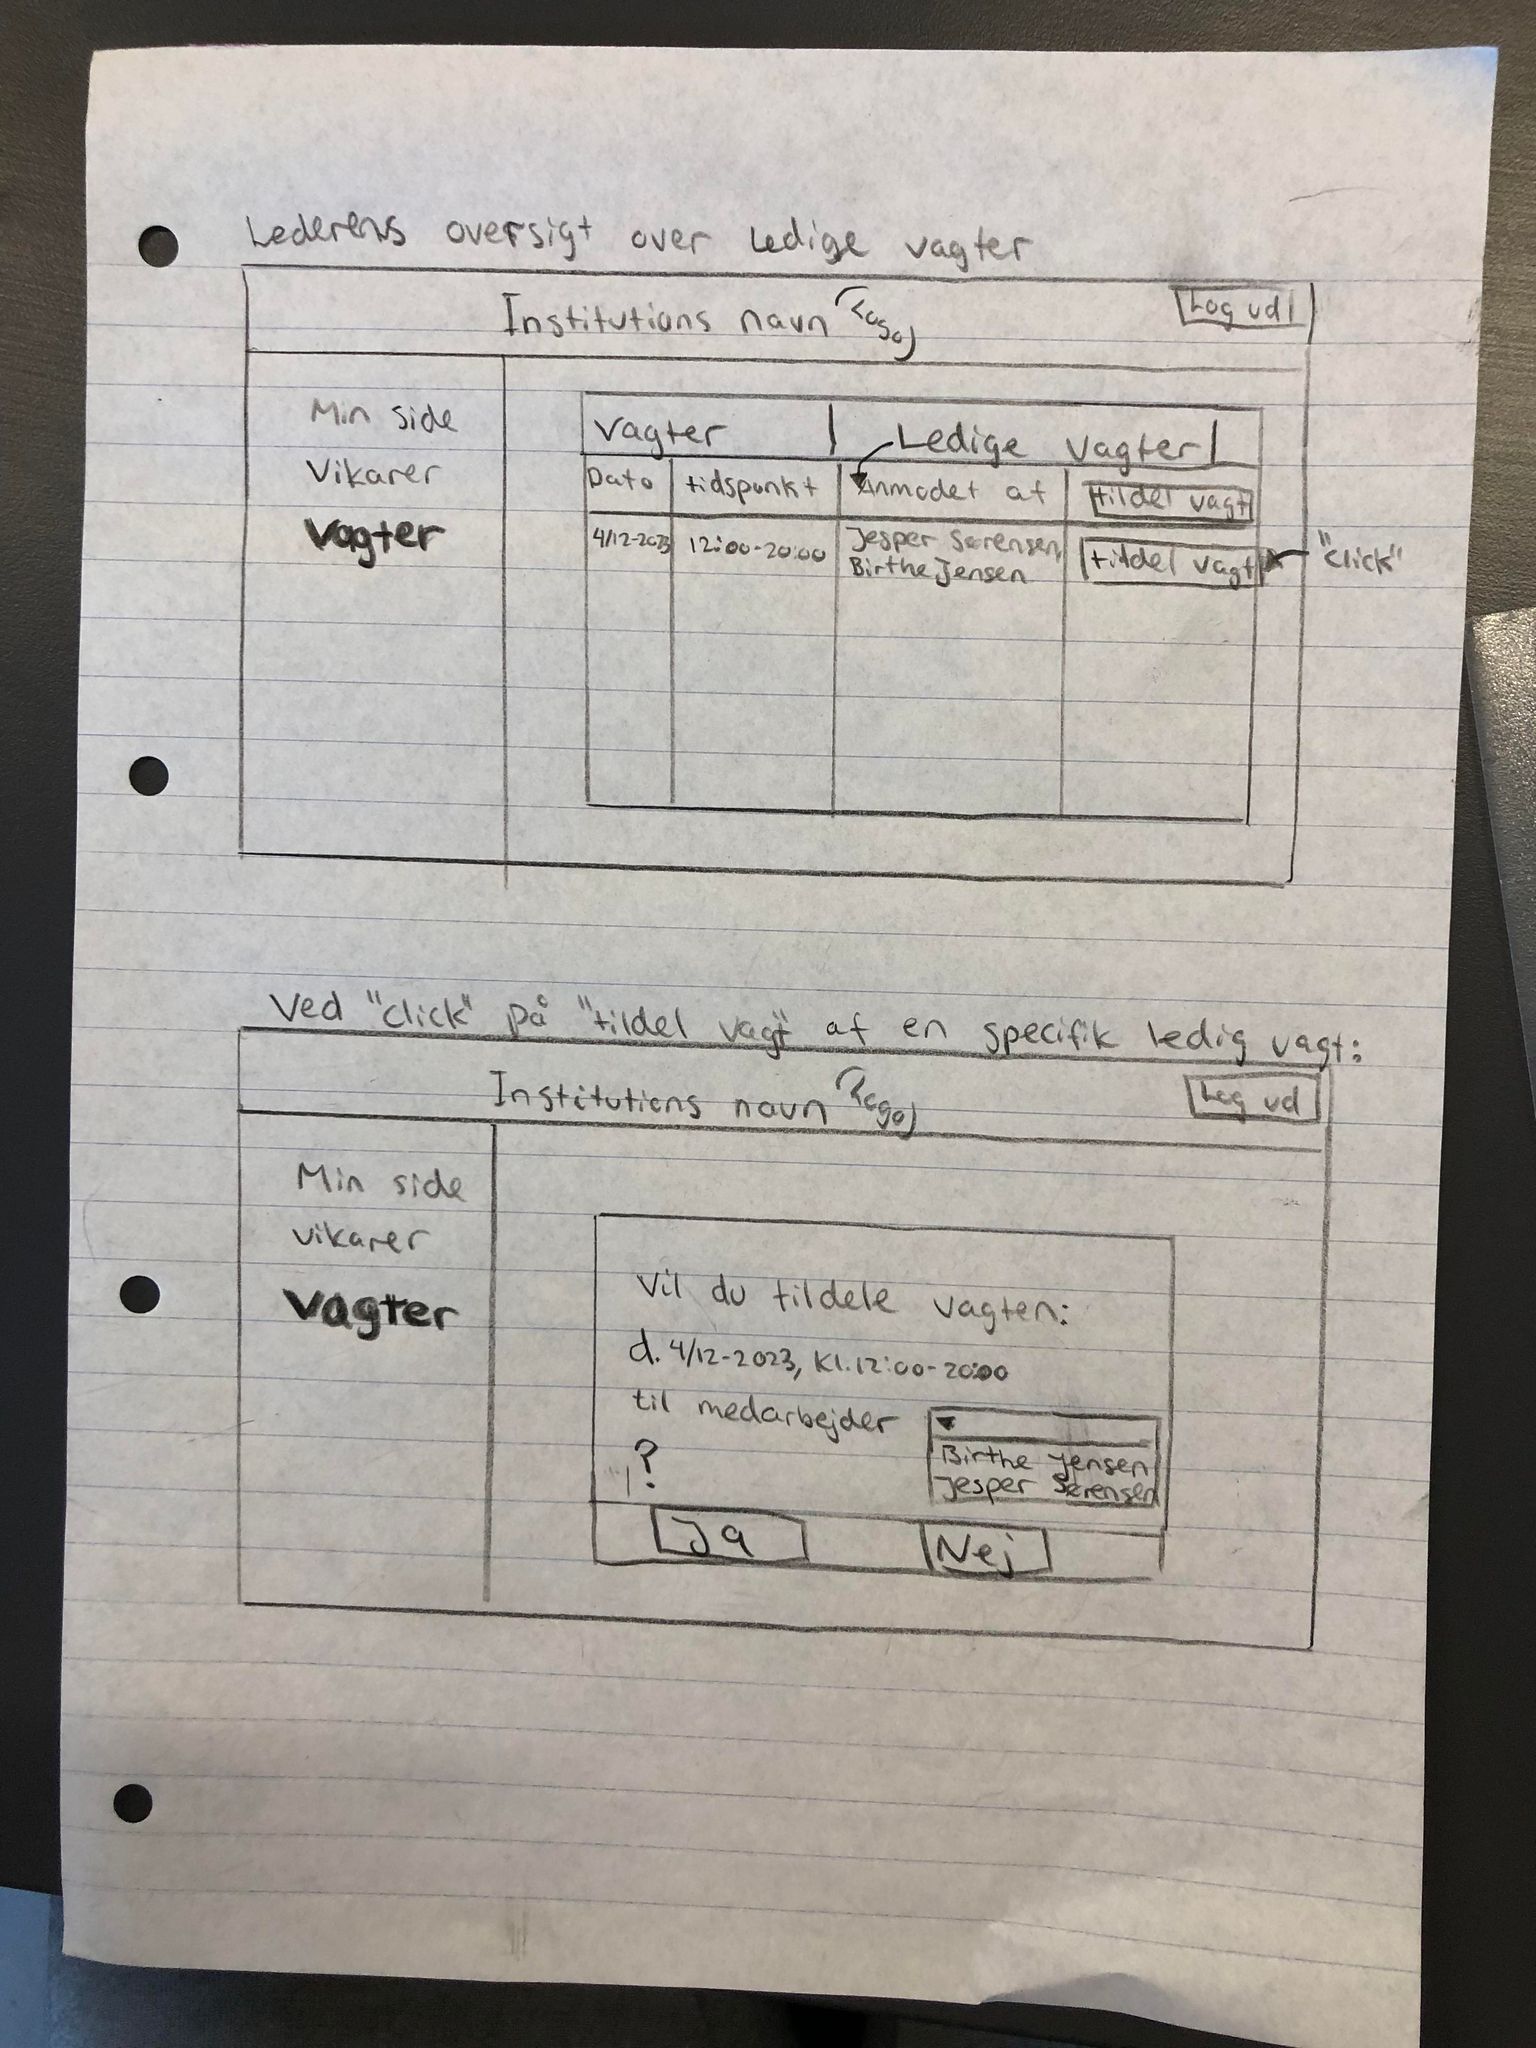 Lederens oversigt over ledige vagter
Institutions navn (Logo)
Log ud
Min side
Vikarer
Vagter
Vagter
Ledige vagter
Dato
tidspunkt
Anmodet af
tildel vagt
4/12-2023
12:00-20:00
Jesper Sørensen,
Birthe Jensen
tildel vagt
"click"
Ved "click" på "tildel vagt" af en specifik ledig vagt:
Institutions navn (Logo)
Log ud
Min side
vikarer
Vagter
Vil du tildele vagten:
d. 4/12-2023, Kl. 12:00-20:00
til medarbejder
Birthe Jensen
Jesper Sørensen
?
Ja
Nej